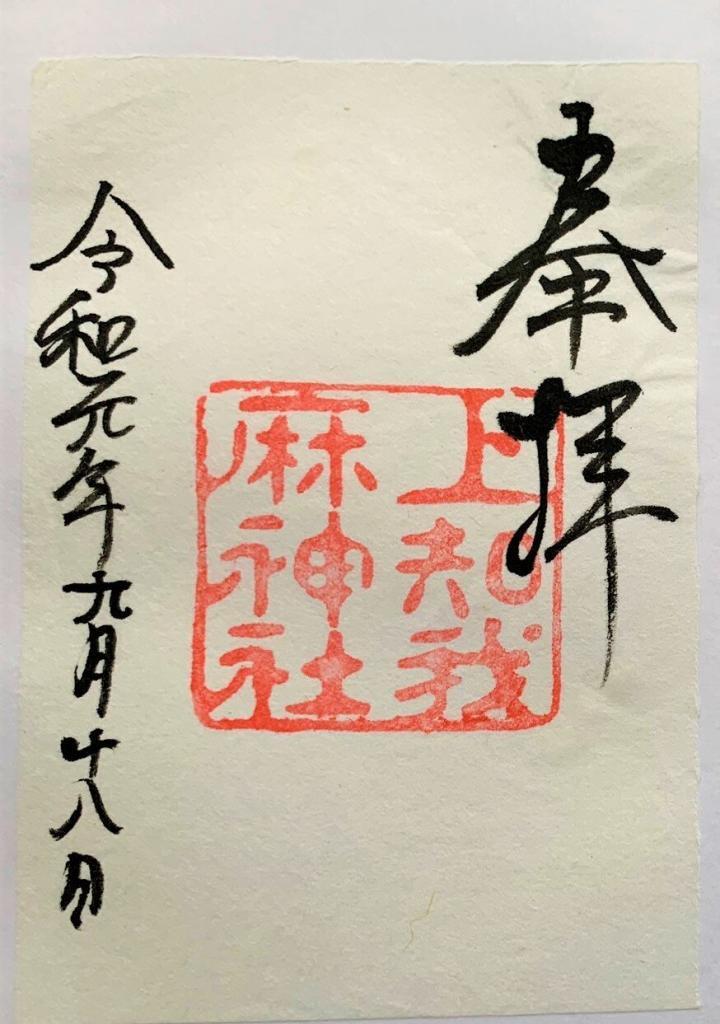 奉拝
上知我
麻神社
令和元年九月十八日